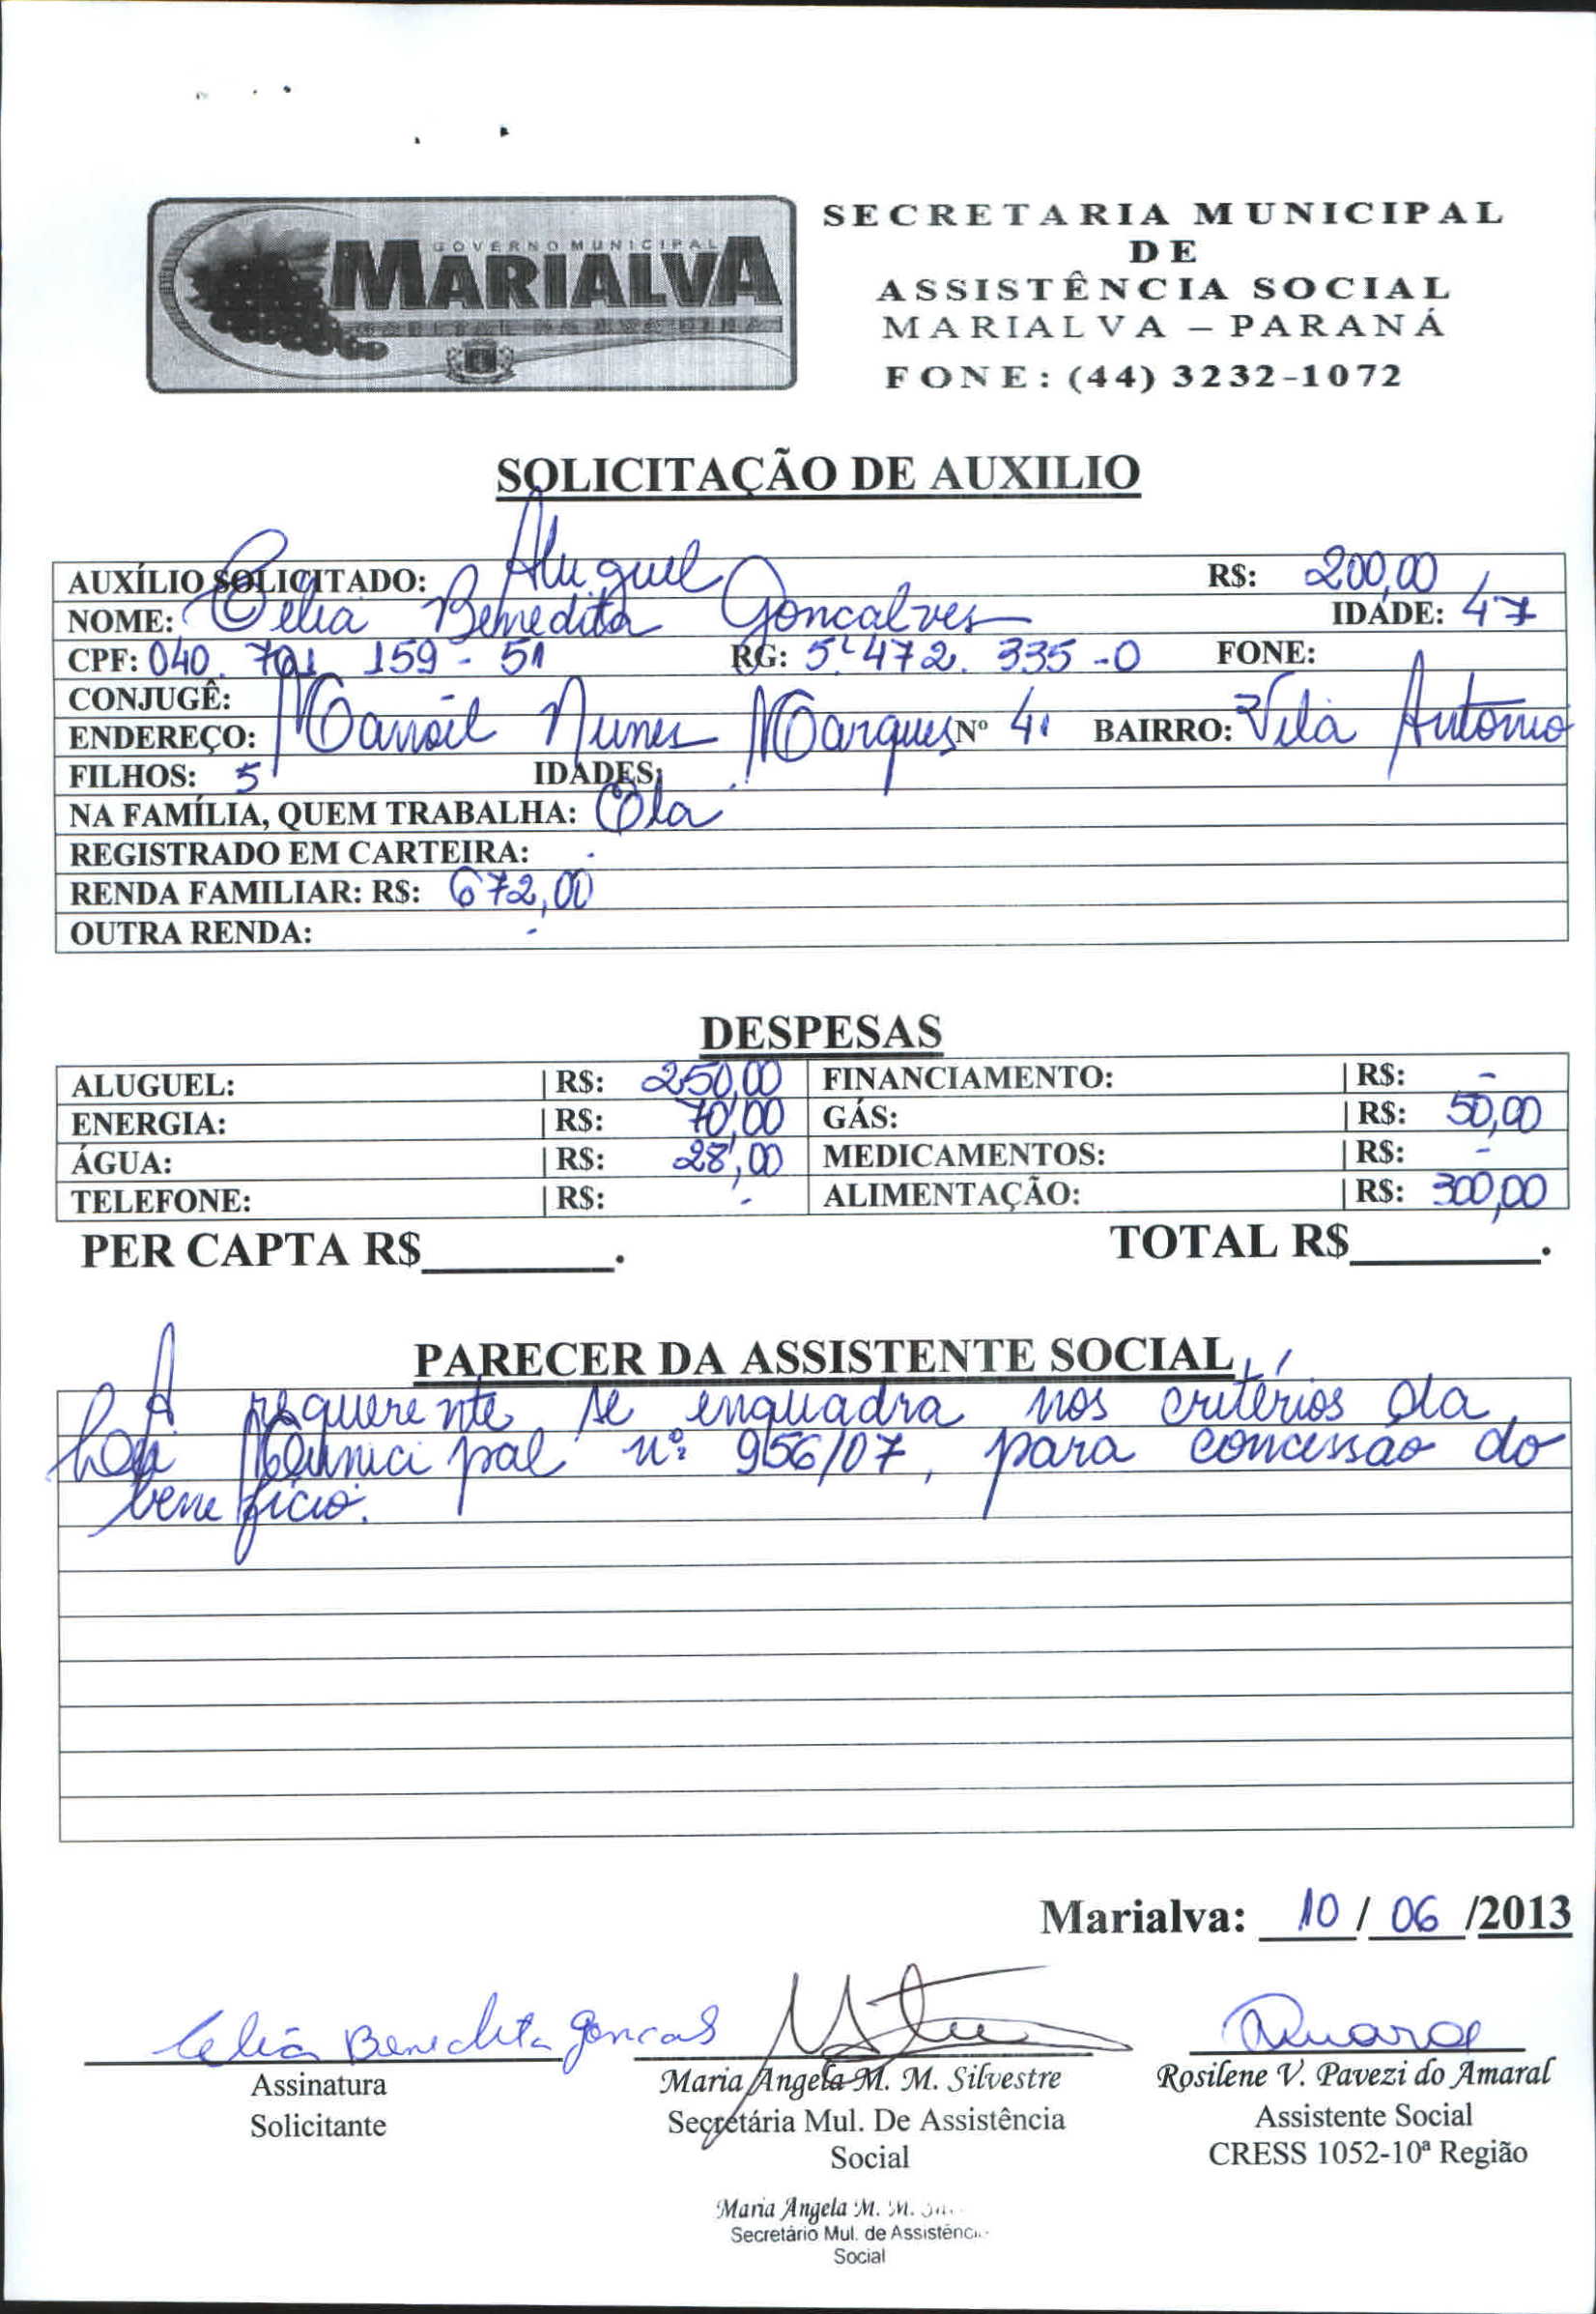 GOVERNO MUNICIPAL
MARIALVA
SECRETARIA MUNICIPAL
DE
ASSISTÊNCIA SOCIAL
MARIALVA – PARANÁ
FONE: (44) 3232-1072
SOLICITAÇÃO DE AUXILIO
AUXÍLIO SOLICITADO: Aluguel R$: 200,00
NOME: Célia Benedita Goncalves IDADE: 47
CPF: 040.701.159-51 RG: 5.472.335-0 FONE:
CONJUGÊ:
ENDEREÇO: Manoel Nunes Marques Nº 41 BAIRRO: Vila Antonio
FILHOS: 5 IDADES:
NA FAMÍLIA, QUEM TRABALHA: Ela
REGISTRADO EM CARTEIRA: -
RENDA FAMILIAR: R$: 672,00
OUTRA RENDA: -
DESPESAS
ALUGUEL: | R$: 250,00 FINANCIAMENTO: | R$: -
ENERGIA: | R$: 70,00 GÁS: | R$: 50,00
ÁGUA: | R$: 28,00 MEDICAMENTOS: | R$: -
TELEFONE: | R$: - ALIMENTAÇÃO: | R$: 300,00
PER CAPTA R$________. TOTAL R$________.
PARECER DA ASSISTENTE SOCIAL
A requerente se enquadra nos critérios da
Lei Municipal nº 956/07, para concessão do
beneficio.
Marialva: 10 / 06 /2013
Celia Benedita Goncas
Assinatura
Solicitante
Maria Angela M. M. Silvestre
Secretária Mul. De Assistência
Social
Amaral
Rosilene V. Pavezi do Amaral
Assistente Social
CRESS 1052-10ª Região
Maria Angela M. M.
Secretário Mul. de Assistênci
Social